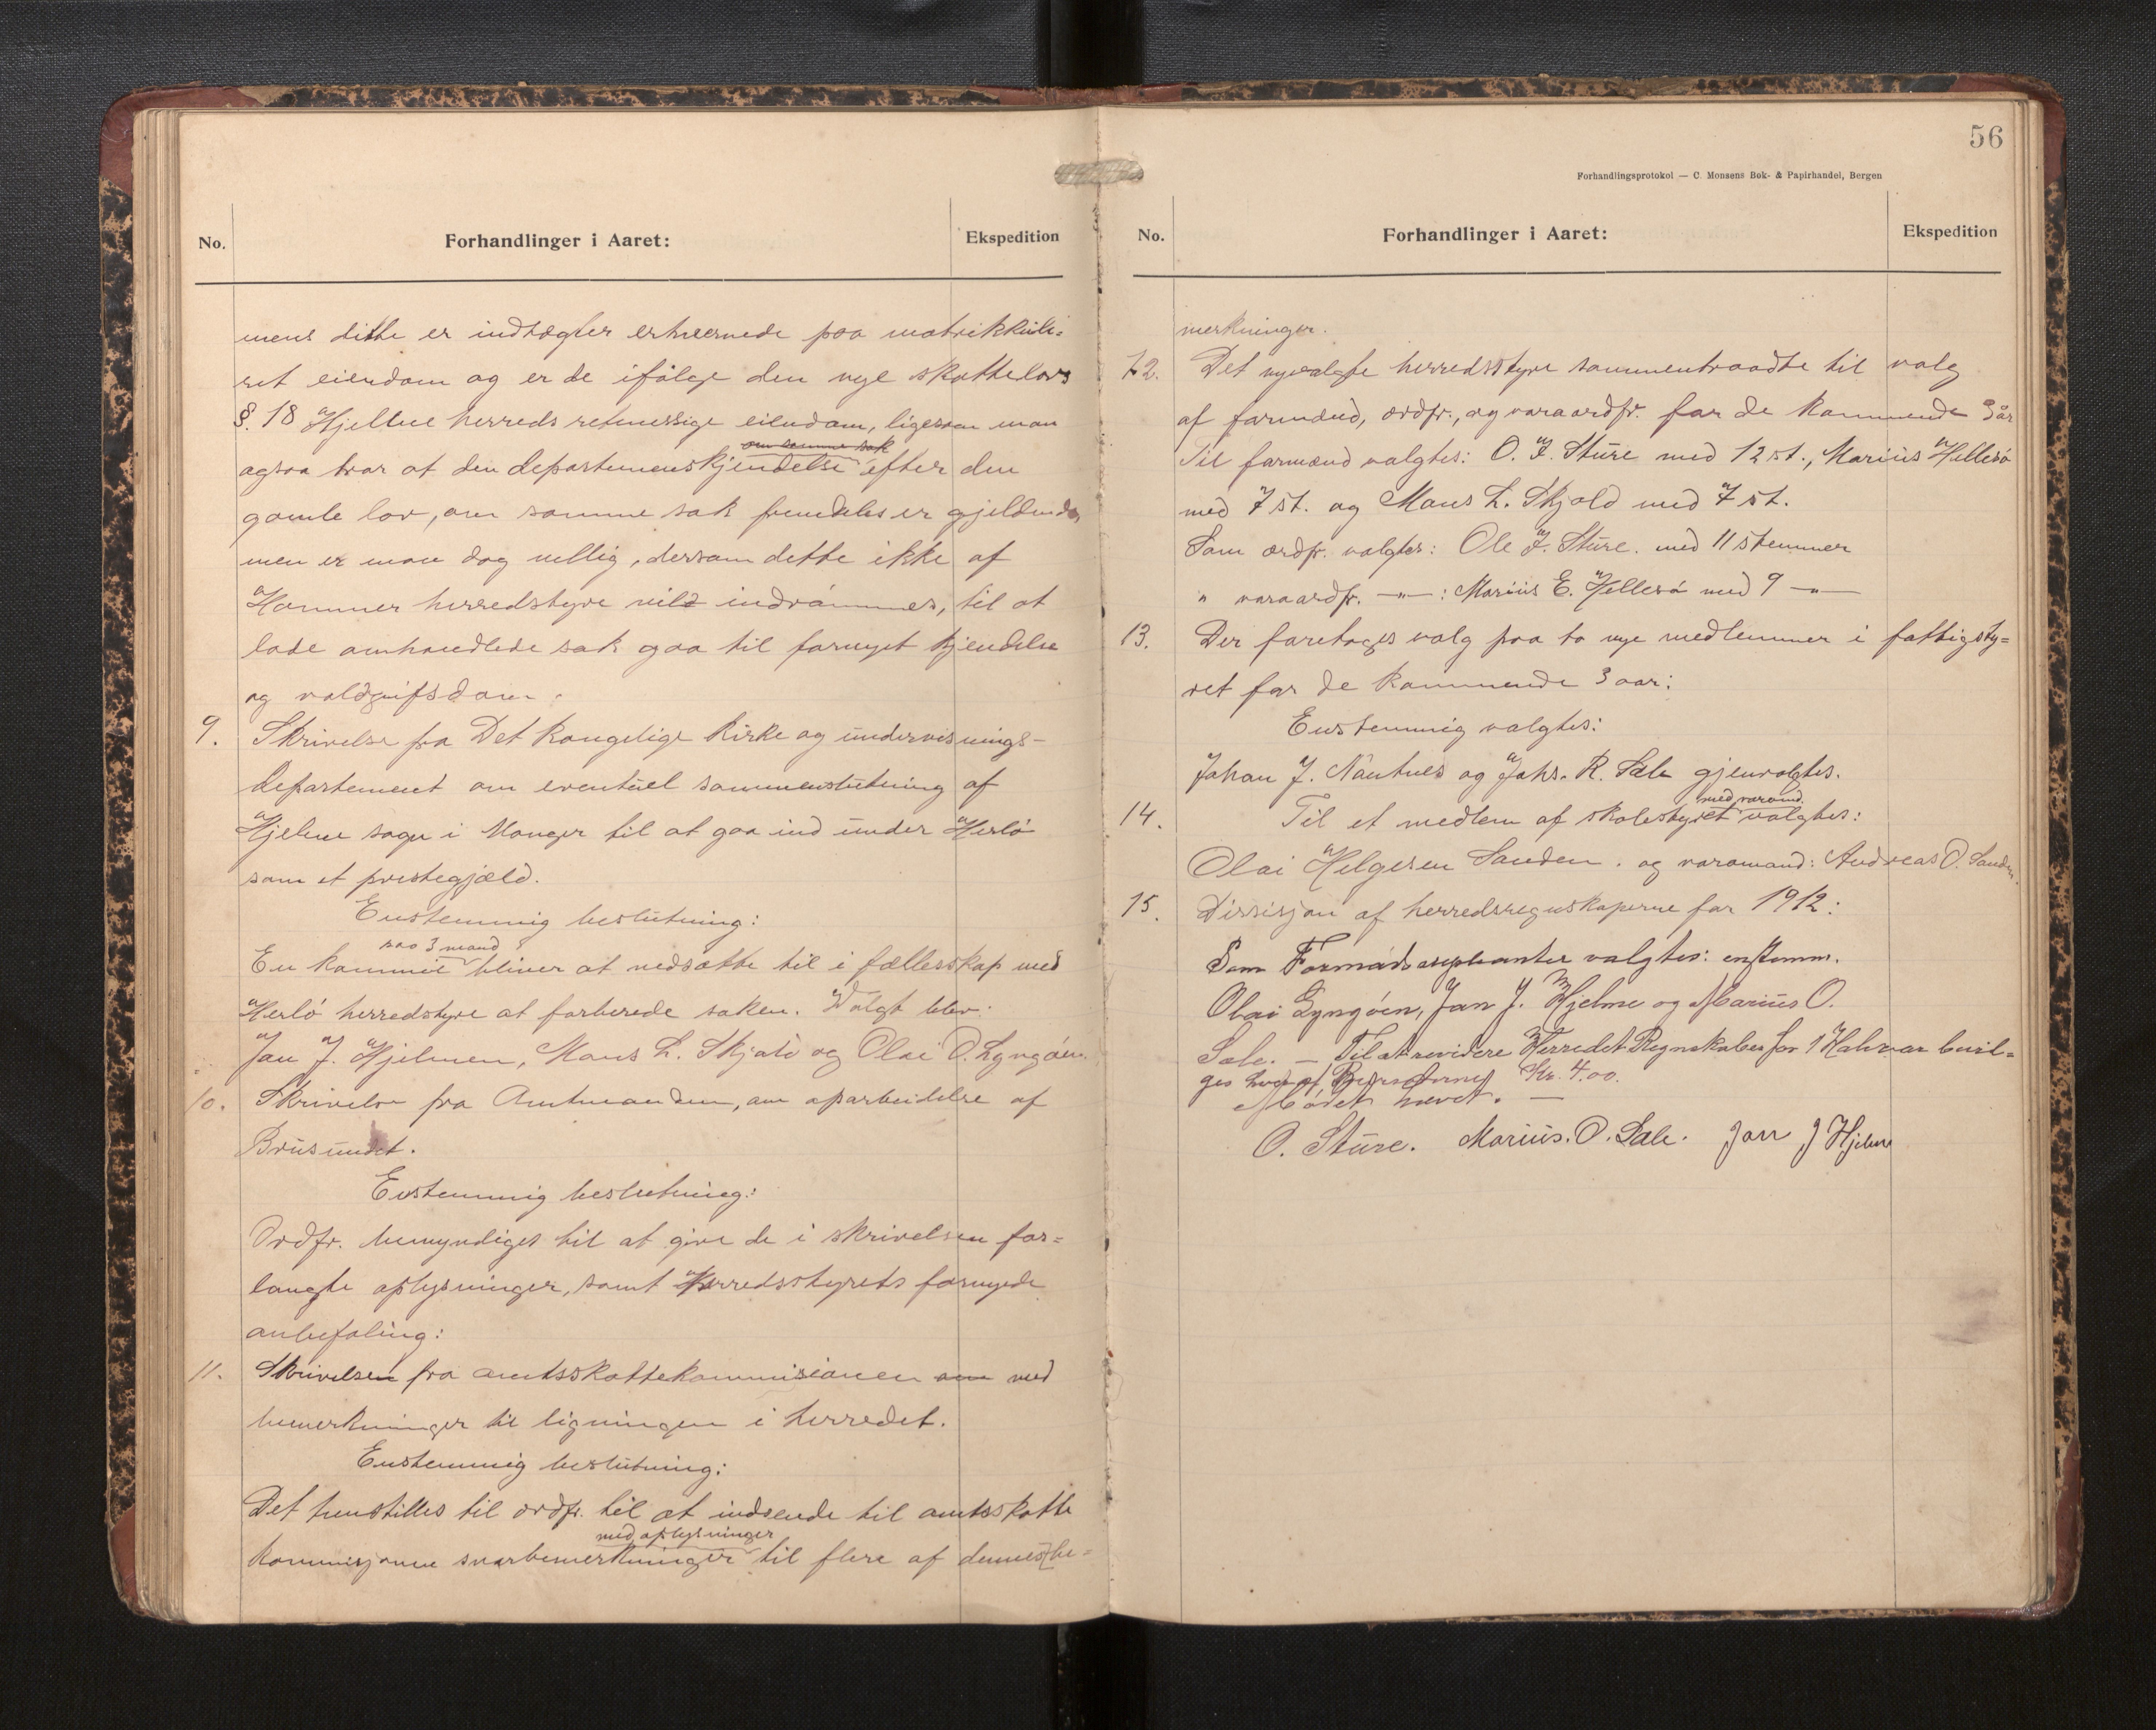 No.
Forhandlinger i Aaret:
Ekspedition
mens dette er indtægter erhvervede paa matrikkule-
ret eiendom og er de ifølge den nye skattelovs
§. 18 Hjelme herreds retmessige eiendom, ligesom man
om samme sak
ogsaa tror at den departemenskjendelse efter den
gamle lov, om samme sak fremdeles er gjeldende,
men er man dog villig, dersom dette ikke af
Hammer herredstyre vild indrømmes, til at
lade omhandlede sak gaa til fornyet kjendelse
og voldgifsdom.
9. Skrivelse fra Det kongelige Kirke og undervisnings-
departement om eventuel sammenslutning af
Hjelme sogn i Manger til at gaa ind under Herlø
som et prestegjæld.
Enstemmig beslutning:
paa 3 mand
En kommite bliver at nedsætte til i fællesskap med
Herlø herredstyre at forberede saken. Valgt blev:
Jan J. Hjelmen, Mons L. Skjold og Olai O. Lyngøen.
10. Skrivelse fra Amtmanden, om oparbeidelse af
Brusundet.
Enstemmig beslutning:
Ordfr. bemyndiges til at give de i skrivelsen for-
langte oplysninger, samt Herredsstyrets fornyede
anbefaling:
11. Skrivelsen fra amtsskattekommisionen om med
bemerkninger til ligningen i herredet.
Enstemmig beslutning:
Det henstilles til ordfr. til at indsende til amtsskatte
med oplysninger
kommisjonen svarbemerkninger til flere af dennes be-
56
Forhandlingsprotokol — C. Monsens Bok- & Papirhandel, Bergen
No.
Forhandlinger i Aaret:
Ekspedition
merkninger.
12. Det nyvalgte herredsstyre sammentraadte til valg
af formænd, ordfr., og varaordfr. for de kommende 3 år
Til formænd valgtes: O. J. Sture med 12 st., Marius Hellesø
med 7 st. og Mons L. Skjold med 7 st.
Som ordfr. valgtes: Ole J. Sture. med 11 stemmer
" varaordfr. —"—: Marius E. Hellesø med 9 —"—
13. Der foretages valg paa to nye medlemmer i fattigsty-
ret for de kommende 3 aar:
Enstemmig valgtes:
Johan J. Nautnes og Johs. R. Sæle gjenvalgtes.
med varamd.
14. Til et medlem af skolestyret valgtes:
Olai Helgesen Sanden. og varamand: Andreas O. Sanden.
15. Dissisjon af herredsregnskaperne for 1912:
Som valgtes: enstemm.
Olai Lyngøen, Jan J. Hjelme og Marius O.
Sæle. — Til at revidere Herredet Regnskaber for 1 Halvaar bevil-
ges hver af Kr. 4.00.
Mødet hævet. —
O. Sture. Marius. O. Sæle. Jan J Hjelme